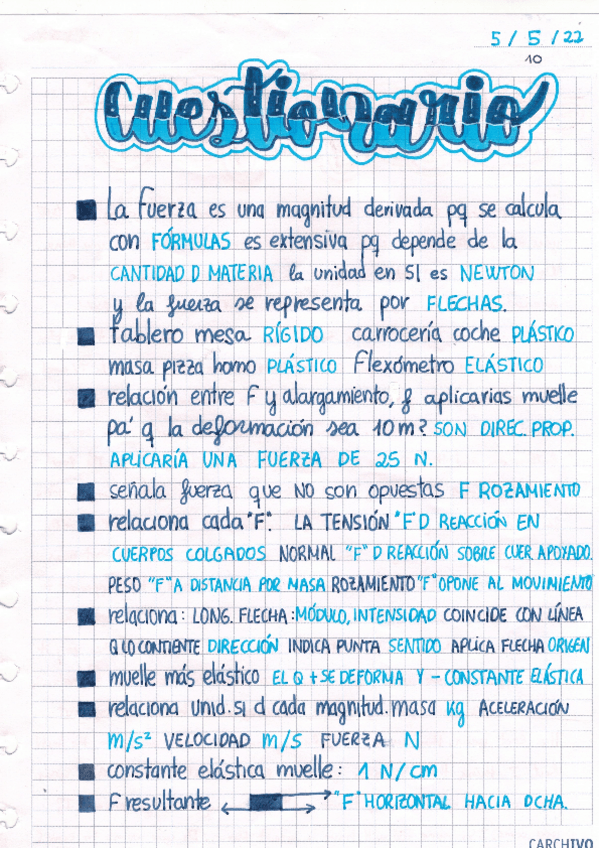 5/5/22
10
cuestionario
La fuerza es una magnitud derivada pq se calcula
con FÓRMULAS es extensiva pq depende de la
CANTIDAD D MATERIA la unidad en SI es NEWTON
y la fuerza se representa por FLECHAS.
tablero mesa RÍGIDO carrocería coche PLÁSTICO
masa pizza homo PLÁSTICO Flexómetro ELÁSTICO
relación entre F y alargamiento, f aplicarias muelle
pa' q la deformación sea 10m? SON DIREC. PROP.
APLICARÍA UNA FUERZA DE 25 N.
señala fuerza que NO son opuestas F ROZAMIENTO
relaciona cada "F": LA TENSIÓN "F" D REACCIÓN EN
CUERPOS COLGADOS NORMAL "F" D REACCIÓN SOBRE CUER APOYADO.
PESO "F" A DISTANCIA POR MASA ROZAMIENTO "F" OPONE AL MOVIMIENTO
relaciona: LONG. FLECHA: MÓDULO, INTENSIDAD COINCIDE CON LÍNEA
Q LO CONTIENTE DIRECCIÓN INDICA PUNTA SENTIDO APLICA FLECHA ORIGEN
muelle más elástico EL Q + SE DEFORMA Y - CONSTANTE ELÁSTICA
relaciona unid. SI d cada magnitud. masa kg ACELERACIÓN
m/s² VELOCIDAD m/s FUERZA N
constante elástica muelle: 1 N/cm
F resultante "F" HORIZONTAL HACIA DCHA.
CARCHIVO